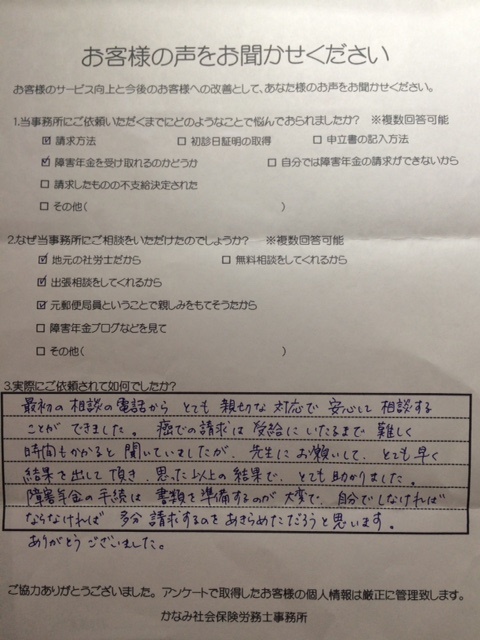 お客様の声をお聞かせください
お客様のサービス向上と今後のお客様への改善として、あなた様のお声をお聞かせください。
1.当事務所にご依頼いただくまでにどのようなことで悩んでおられましたか? ※複数回答可能
☑ 請求方法 □ 初診日証明の取得 □ 申立書の記入方法
☑ 障害年金を受け取れるのかどうか □ 自分では障害年金の請求ができないから
□ 請求したものの不支給決定された
□ その他( )
2.なぜ当事務所にご相談をいただけたのでしょうか? ※複数回答可能
☑ 地元の社労士だから □ 無料相談をしてくれるから
☑ 出張相談をしてくれるから
☑ 元郵便局員ということで親しみをもてそうだから
□ 障害年金ブログなどを見て
□ その他( )
3.実際にご依頼されて如何でしたか?
最初の相談の電話から とても親切な対応で 安心して相談する
ことができました。癌での請求は受給にいたるまで難しく
時間もかかると聞いていましたが、先生にお願いして、とても早く
結果を出して頂き、思った以上の結果で、とても助かりました。
障害年金の手続は 書類を準備するのが大変で、自分でしなければ
ならなければ 多分請求するのをあきらめてただろうと思います。
ありがとうございました。
ご協力ありがとうございました。アンケートで取得したお客様の個人情報は厳正に管理致します。
かなみ社会保険労務士事務所